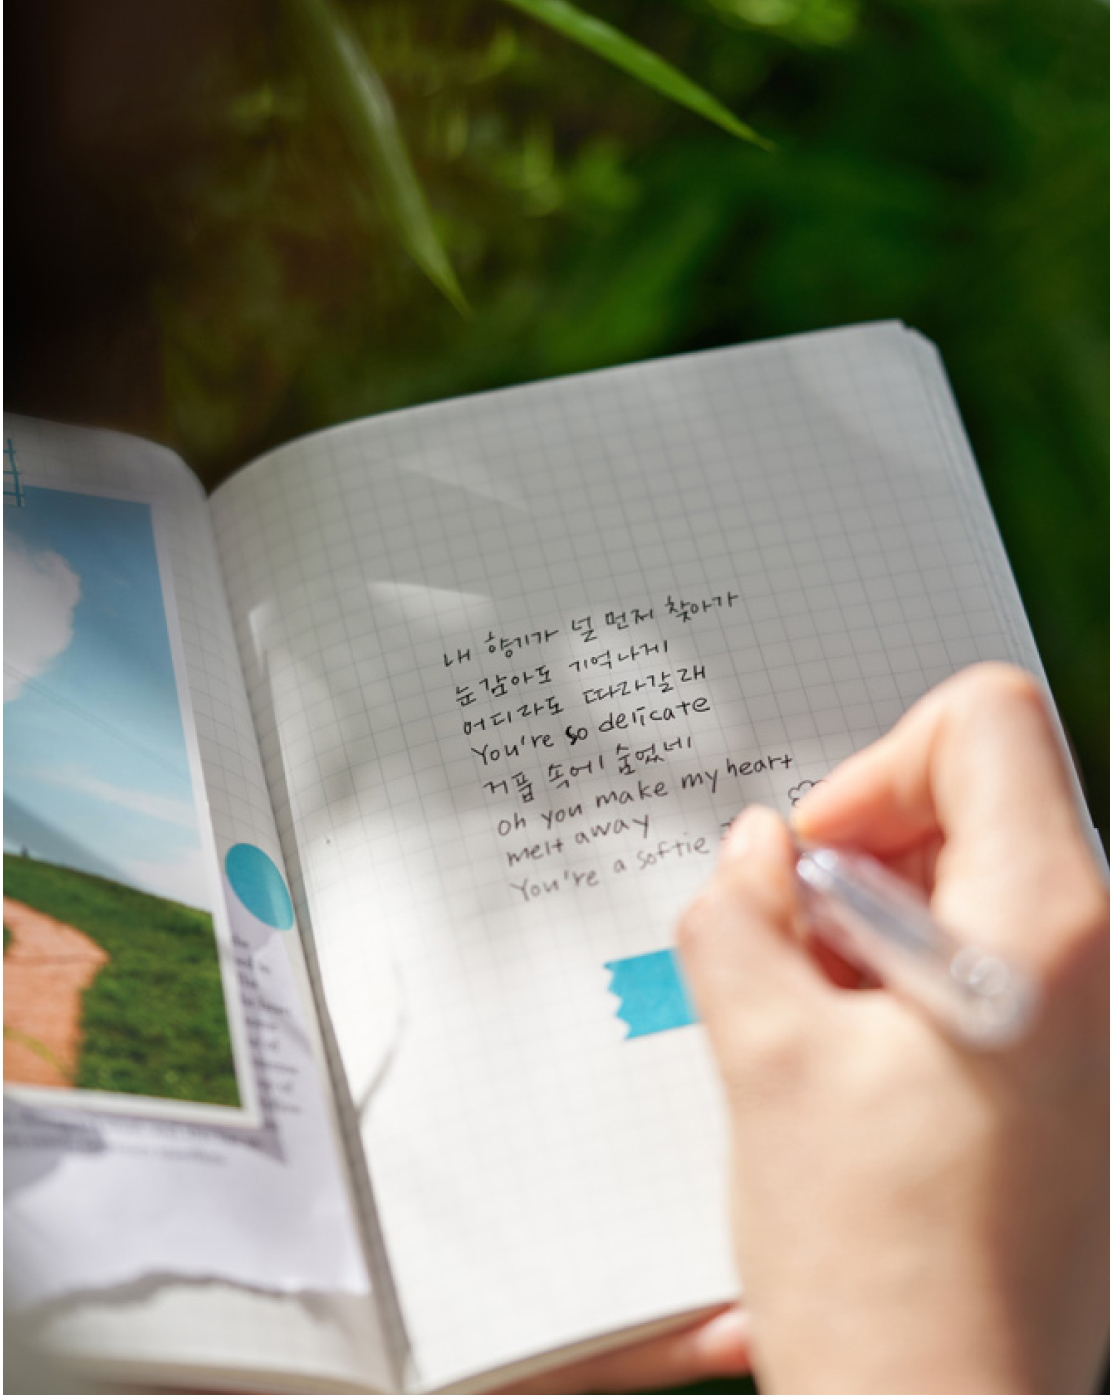 내 향기가 널 먼저 찾아가
눈 감아도 기억나게
어디라도 따라갈래
You're so delicate
거품 속에 숨었네
oh you make my heart
melt away
You're a softie